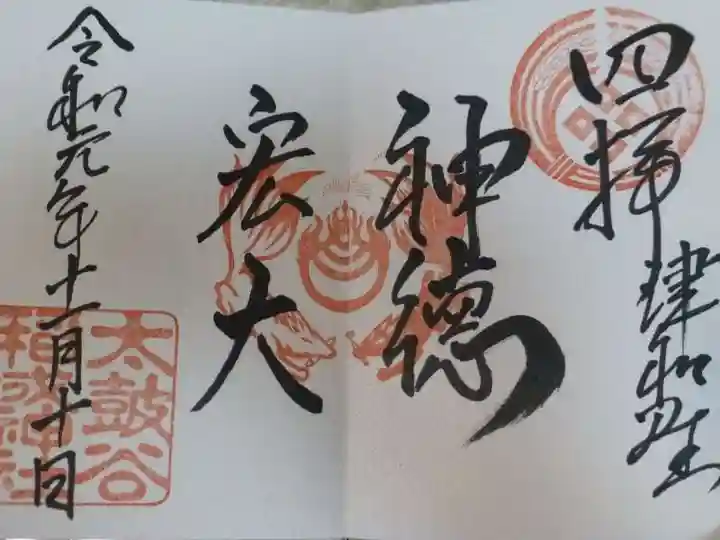 四拝
津和野
神徳
宏大
令和元年十一月十日
太鼓谷
稲成神社